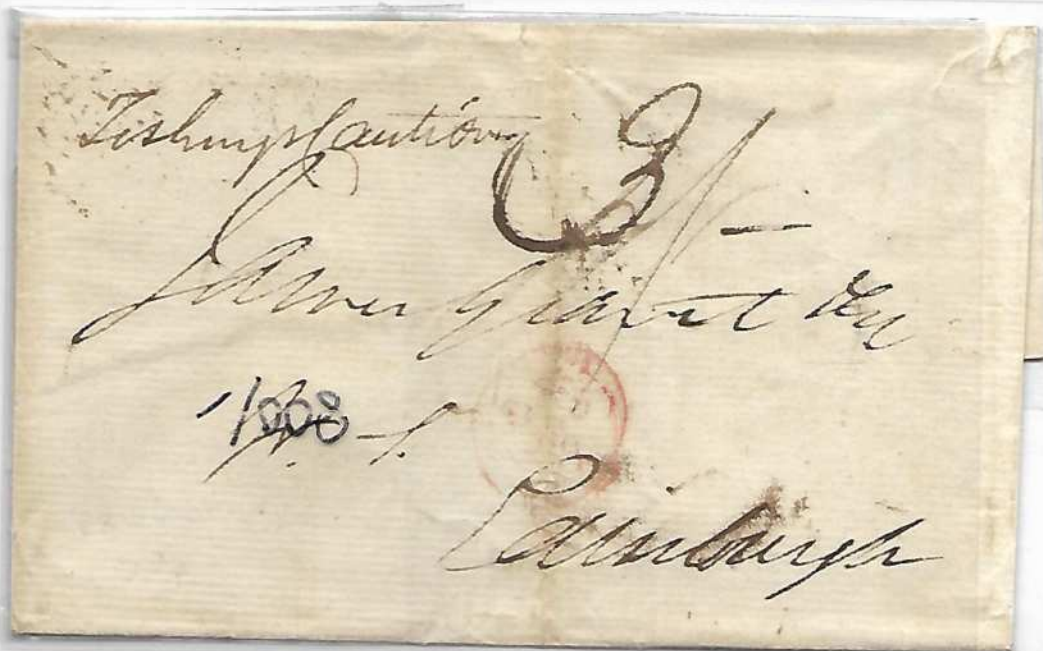 Fishing Cautiõn
3/-
James Grant Esq
1008
W. S.
Edinburgh